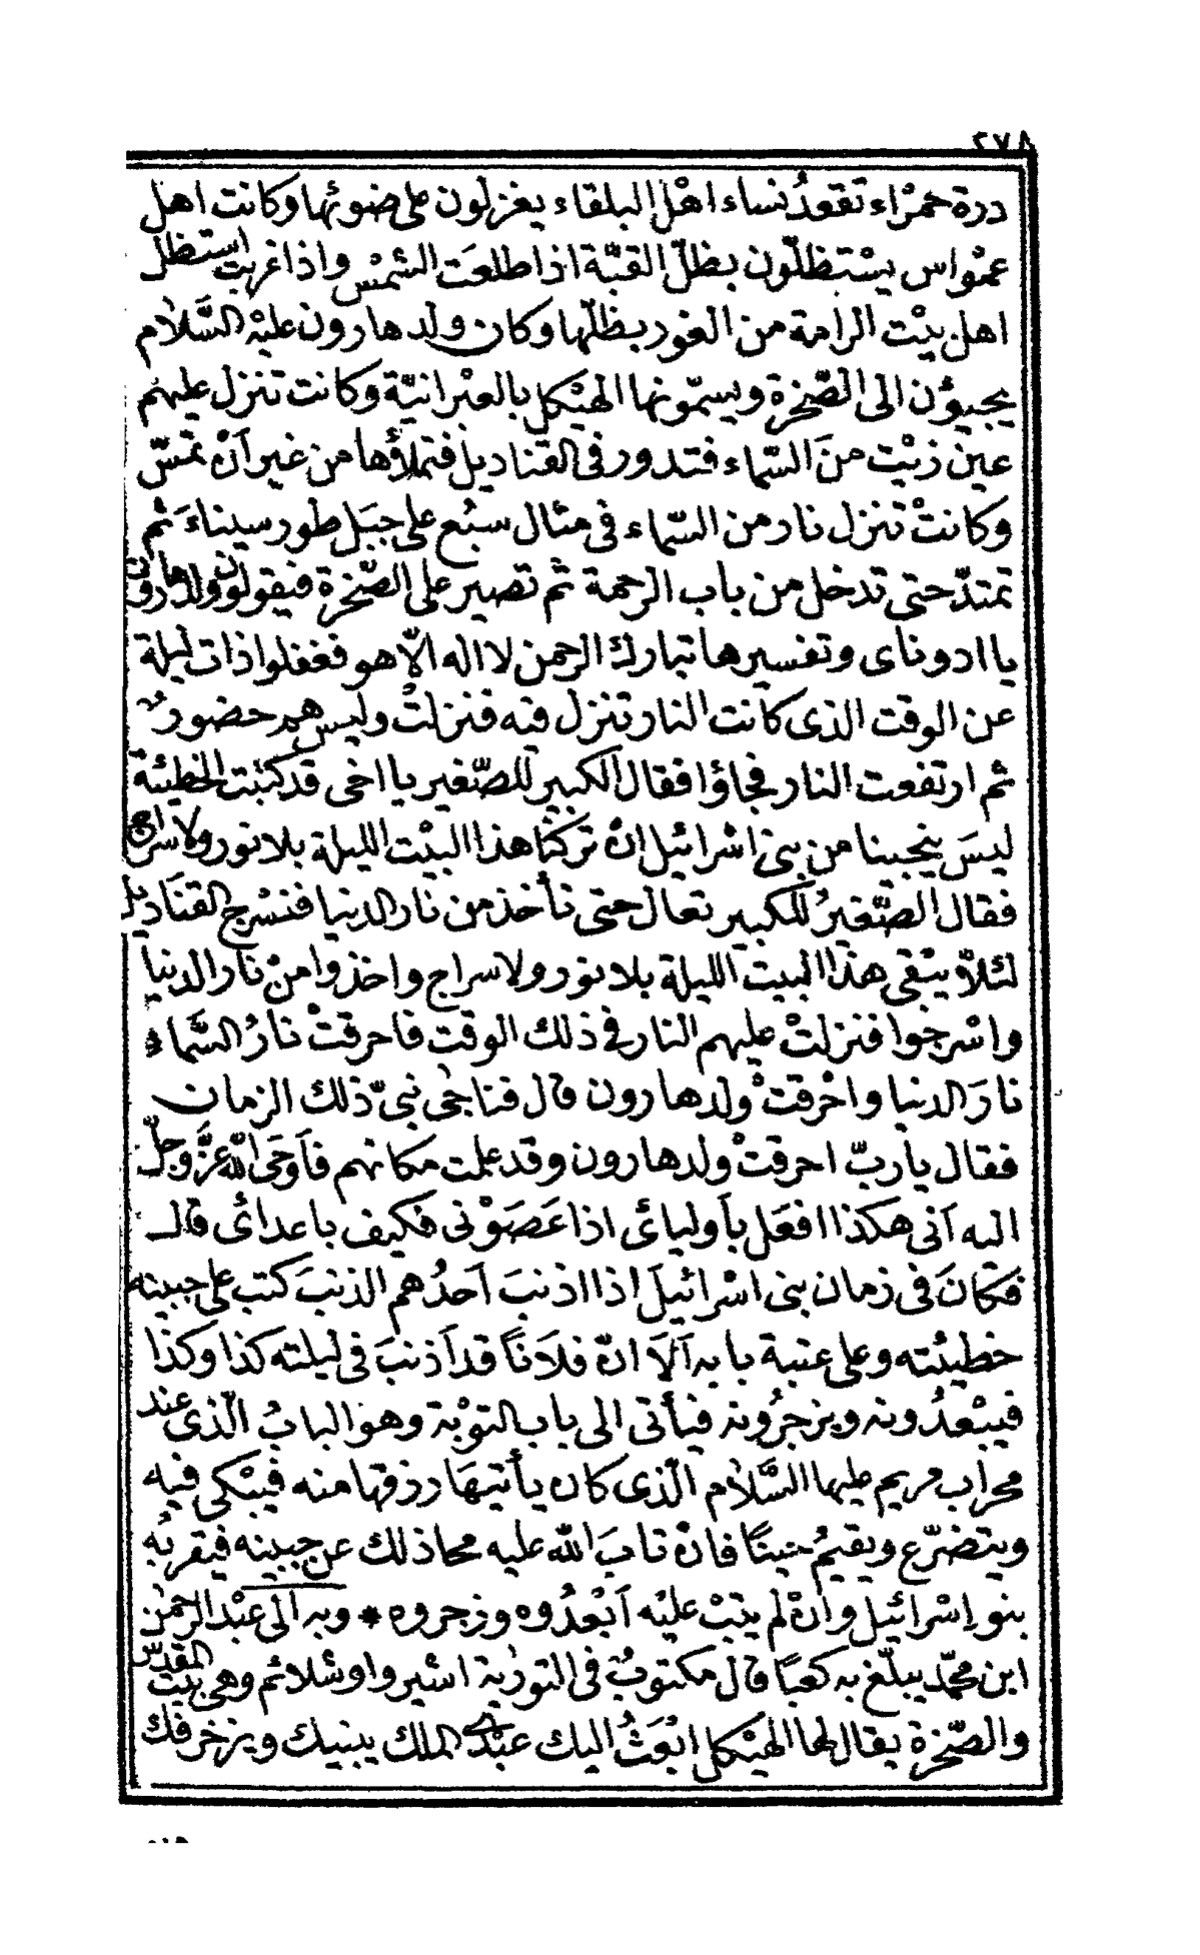 ٢٧٨
درة حمْراء تقعدُ نساء اهْل البلقاء يغزلون على ضوئها وكانت اهل
عمْواس يسْتظلّون بظلّ القبّة اذا طلعَت الشمْس واذا غربت استظل
اهل بيْت الرامة من الغور بظلّها وكان ولد هارون عليْه السَّلام
يجيؤن الى الصّخرة ويسمّونها الهيْكل بالعبْرانيّة وكانت تنزل عليهم
عين زيْت منَ السّماء فتدور فى القناديل فتملأها من غير اَنْ تمسّ
وكانتْ تنزل نار من السّماء فى مثال سبُع على جبَل طور سيناءَ ثم
تمتدّ حتى تدخل من باب الرحمة ثم تصير على الصّخرة فيقولون ولد هارون
يا ادوناى وتفسيرها تبارك الرحمن لا اله الّا هو فغفلوا ذات ليلة
عن الوقت الذى كانت النار تنزل فيه فنزلتْ وليس هم حضورٌ
ثم ارتفعت النار فجاؤا فقال الكبير للصّغير يا اخى قد كتبت الخطيئة
ليسَ ينجينا من بنى اسْرائيل انْ تركنْا هذا البيْت الليلة بلا نور ولا سراج
فقال الصّغيرُ للكبير تعال حتى نأخذ من نار الدنيا فنسْرج القنَاديل
لئلاّ يبْقى هذا البيت الليلة بلا نور ولا سراج واخذوا منْ نار الدنيا
واسْرجوا فنزلتْ عليهم النار فى ذلك الوقت فاحرقتْ نارُ السَّماء
نارَ الدنيا واحْرقتْ ولد هارون قال فناجٰى نبىّ ذلك الزمان
فقال يا ربّ احرقتْ ولد هارون وقد علمت مكانهم فاَوحَى اللّٰه عزَّ وجلّ
اليه اَنى هكذا افعَل باَوليائى اذا عَصَوْنى فكيف باعدائى قال
فكانَ فى زمان بنى اسْرائيلَ اذا اذنبَ اَحدُهم الذنبَ كتب على جبينه
خطيئته وعلى عتبة بابه اَلاَ انّ فلاَنًا قد اَذنبَ فى ليلته كذا وكذا
فيبْعدُونه ويزجرُونه فيأتى الى باب التوْبة وهو البابُ الّذى عند
محراب مريم عليها السَّلام الّذى كان يأتيهَا رزقها منه فيَبْكى فيه
ويتضرّع ويقيمُ حينًا فانْ تابَ اللّٰه عليه محا ذلك عن جبينه فيقربُه
بنو إسْرائيل وانْ لم يتبْ عليْه اَبْعدُوه وزجروه * وبه الى عبْد الرحمٰن
ابن محمّد يبلّغ به كعبًا قال مكتوبٌ فى التورٰية اشيروا اوشلائم وهى بيْت المقدّس
والصّخرة يقال لها الهيْكل ابْعَثُ اليك عبْدى الملك يبنيك ويزخرفك